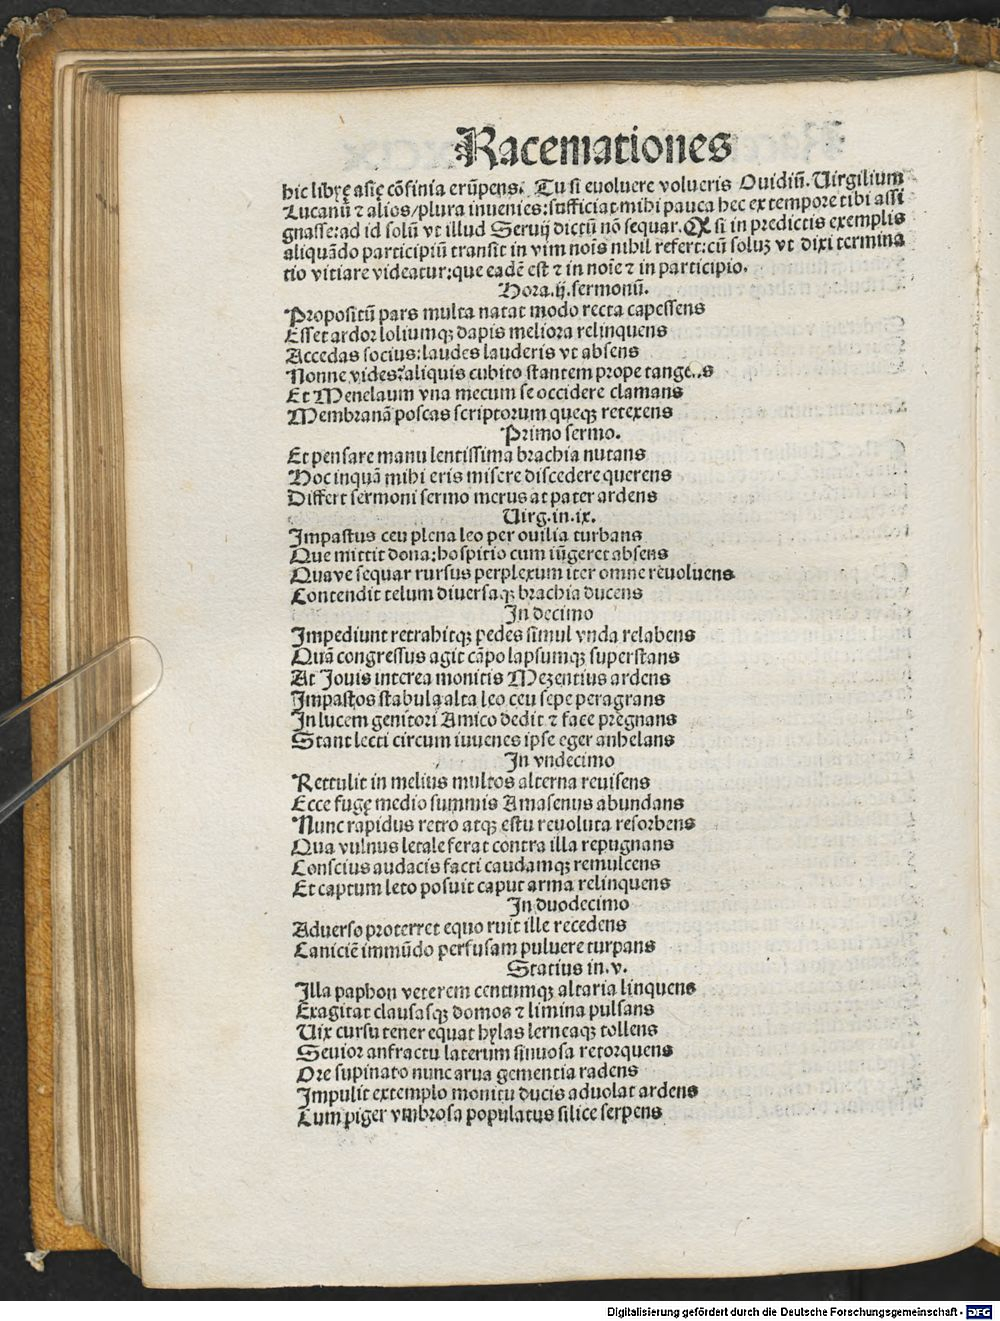 Racemationes
hic librę asię cōfinia erūpens. Tu si euoluere volueris Ouidiū. Uirgilium
Lucanū ⁊ alios/plura inuenies: sufficiat mihi pauca hec ex tempore tibi assi
gnasse: ad id solū vt illud Seruij dictū nō sequar. Qꝫ si in predictis exemplis
aliquādo participiū transit in vim nois nihil refert: cū soluꝫ vt dixi termina
tio vitiare videatur: que eadē est ⁊ in noīe ⁊ in participio.
Hora. ij. sermonū.
Propositū pars multa natat modo recta capessens
Esset ardor loliumqꝫ dapis meliora relinquens
Accedas socius: laudes lauderis vt absens
Nonne vides? aliquis cubito stantem prope tangens
Et Menelaum vna mecum se occidere clamans
Membranā poscas scriptorum queqꝫ retexens
Primo sermo.
Et pensare manu lentissima brachia nutans
Hoc inquā mihi eris misere discedere querens
Differt sermoni sermo merus at pater ardens
Uirg. in. ix.
Impastus ceu plena leo per ouilia turbans
Que mittit dona: hospitio cum iūgeret absens
Quave sequar rursus perplexum iter omne reuoluens
Contendit telum diuersaqꝫ brachia ducens
In decimo
Impediunt retrahitqꝫ pedes simul vnda relabens
Quā congressus agit cāpo lapsumqꝫ superstans
At Jouis interea monitis Mezentius ardens
Impastos stabula alta leo ceu sepe peragrans
In lucem genitori Amico dedit ⁊ face pregnans
Stant lecti circum iuuenes ipse eger anhelans
In vndecimo
Rettulit in melius multos alterna reuisens
Ecce fugę medio summis Amasenus abundans
Nunc rapidus retro atqꝫ estu reuoluta resorbens
Qua vulnus letale ferat contra illa repugnans
Conscius audacis facti caudamqꝫ remulcens
Et captum leto posuit caput arma relinquens
In duodecimo
Aduerso proterret equo ruit ille recedens
Caniciē immūdo perfusam puluere turpans
Statius in. v.
Illa paphon veterem centumqꝫ altaria linquens
Exagitat clausasqꝫ domos ⁊ limina pulsans
Uix cursu tener equat hylas lerneaqꝫ tollens
Seuior anfractu laterum sinuosa retorquens
Ore supinato nunc arua gementia radens
Impulit extemplo monitu ducis aduolat ardens
Cum piger vmbrosa populatus silice serpens
Digitalisierung gefördert durch die Deutsche Forschungsgemeinschaft - DFG